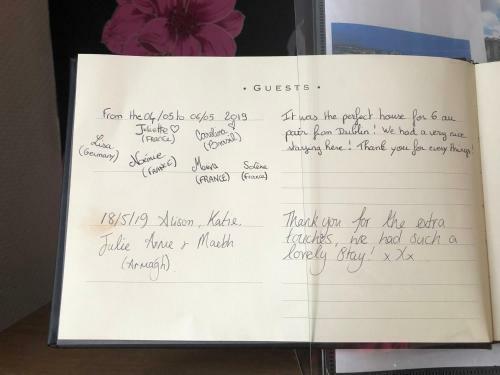 • GUESTS •
From the 04/05 to 06/05 2019
Juliette ♡ Carolina ♡
(FRANCE) (Brasil)
Lisa Noémie Maeva Solène
(Germany) (FRANCE) (FRANCE) (France)
It was the perfect house for 6 au
pair from Dublin! We had a very nice
staying here! Thank you for every things!
18/5/19 Alison, Katie,
Julie Anne & Maebh
(ARMAGH)
Thank you for the extra
touches, we had such a
lovely stay! x Xx